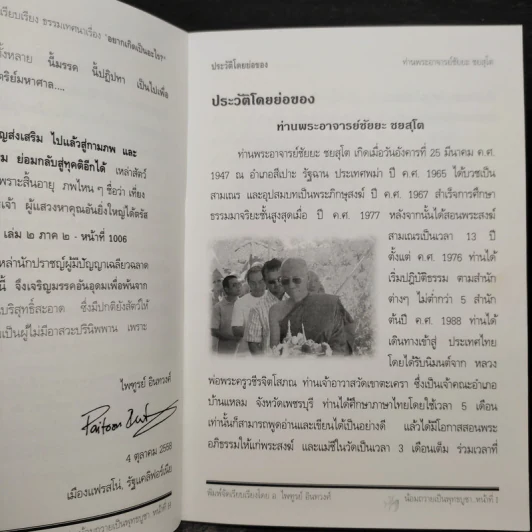 เรียบเรียง ธรรมเทศนาเรื่อง "อยากเกิดเป็นอะไร?"
ทั้งหลาย นี้มรรค นี้ปฏิปทา เป็นไปเพื่อ
ตริย์มหาศาล....
ญส่งเสริม ไปแล้วสู่กามภพ และ
ม ย่อมกลับสู่ทุคติอีกได้ เหล่าสัตว์
เพราะสิ้นอายุ ภพไหน ๆ ชื่อว่า เที่ยง
เจ้า ผู้แสวงหาคุณอันยิ่งใหญ่ได้ตรัส
เล่ม ๒ ภาค ๒ - หน้าที่ 1006
หล่านักปราชญ์ผู้มีปัญญาเฉลียวฉลาด
นี้ จึงเจริญมรรคอันอุดมเพื่อพ้นจาก
บริสุทธิ์สะอาด ซึ่งมีปกติยังสัตว์ให้
เป็นผู้ไม่มีอาสวะปรินิพพาน เพราะ
ไพฑูรย์ อินทวงศ์
4 ตุลาคม 2558
เมืองแฟรสโน่, รัฐแคลิฟอร์เนีย
น้อมถวายเป็นพุทธบูชา หน้าที่
ประวัติโดยย่อของ ท่านพระอาจารย์ชัยยะ ชยสุโต
ประวัติโดยย่อของ
ท่านพระอาจารย์ชัยยะ ชยสุโต
ท่านพระอาจารย์ชัยยะ ชยสุโต เกิดเมื่อวันอังคารที่ 25 มีนาคม ค.ศ.
1947 ณ อำเภอสีเปาะ รัฐฉาน ประเทศพม่า ปี ค.ศ. 1965 ได้บวชเป็น
สามเณร และอุปสมบทเป็นพระภิกษุสงฆ์ ปี ค.ศ. 1967 สำเร็จการศึกษา
ธรรมมาจริยะชั้นสูงสุดเมื่อ ปี ค.ศ. 1977 หลังจากนั้นได้สอนพระสงฆ์
สามเณรเป็นเวลา 13 ปี
ตั้งแต่ ค.ศ. 1976 ท่านได้
เริ่มปฏิบัติธรรม ตามสำนัก
ต่างๆ ไม่ต่ำกว่า 5 สำนัก
ต้นปี ค.ศ. 1988 ท่านได้
เดินทางเข้าสู่ ประเทศไทย
โดยได้รับนิมนต์จาก หลวง
พ่อพระครูวชีรจิตโสภณ ท่านเจ้าอาวาสวัดเขาตะเครา ซึ่งเป็นเจ้าคณะอำเภอ
บ้านแหลม จังหวัดเพชรบุรี ท่านได้ศึกษาภาษาไทยโดยใช้เวลา 5 เดือน
เท่านั้นก็สามารถพูดอ่านและเขียนได้เป็นอย่างดี แล้วได้มีโอกาสสอนพระ
อภิธรรมให้แก่พระสงฆ์ และแม่ชีในวัดเป็นเวลา 3 เดือนเต็ม ร่วมเวลาที่
พิมพ์จัดเรียบเรียงโดย อ. ไพฑูรย์ อินทวงศ์ น้อมถวายเป็นพุทธบูชา หน้าที่ 1